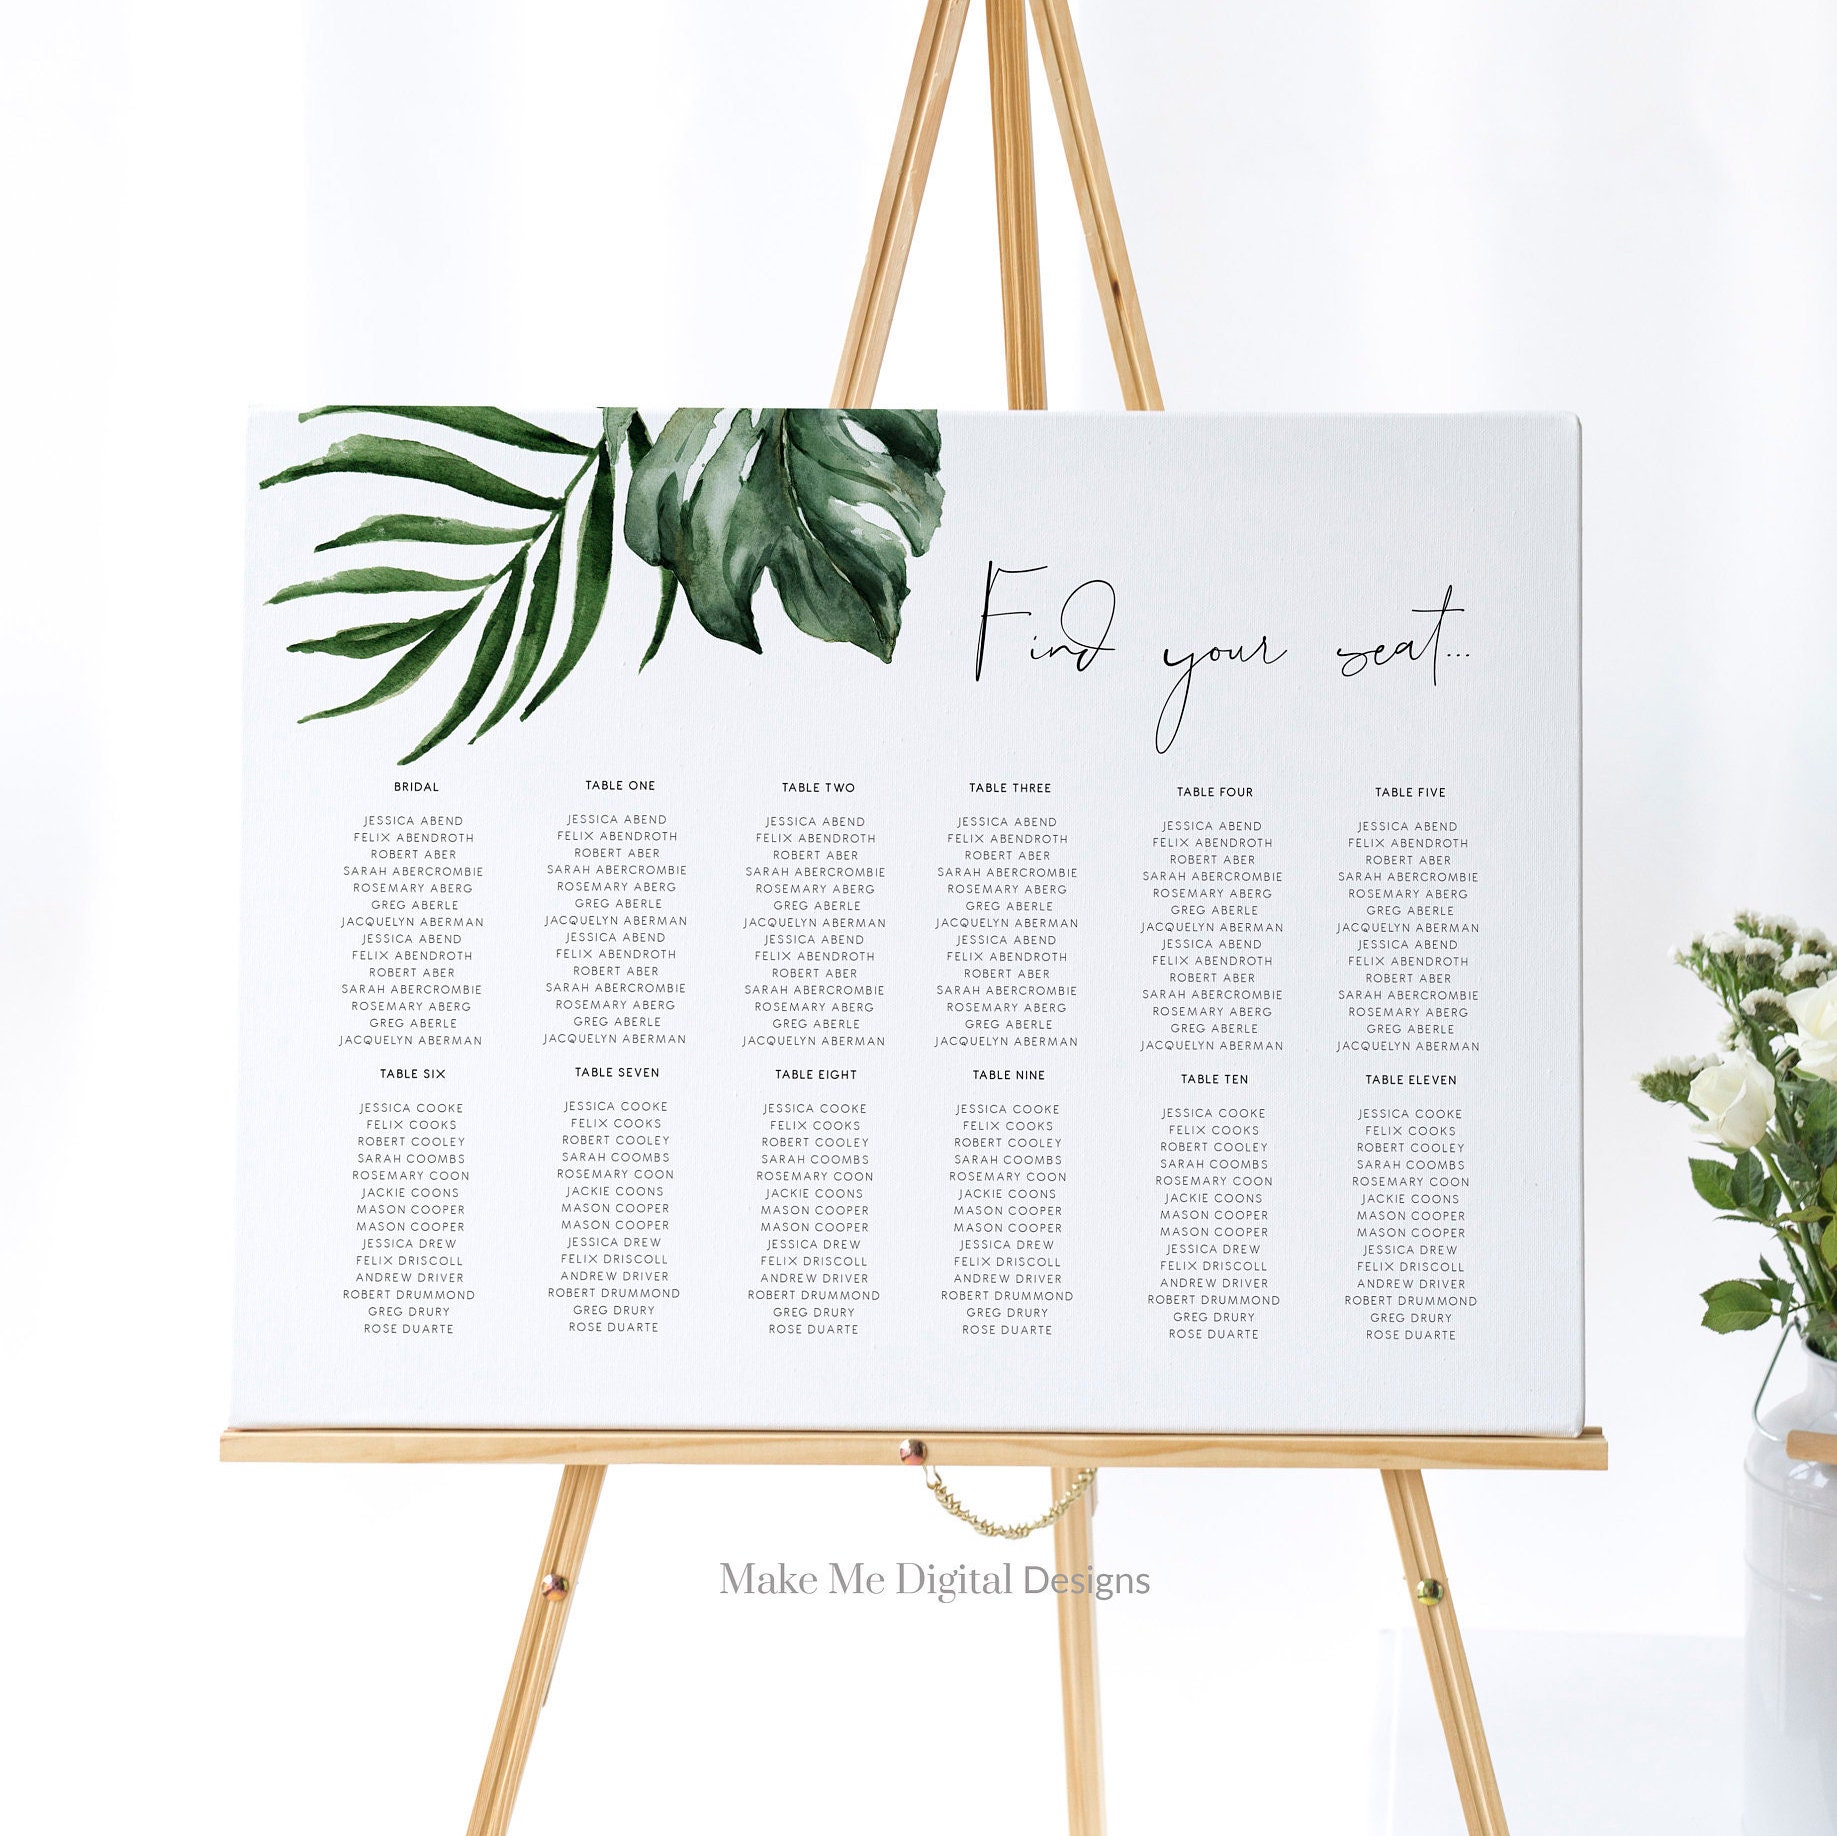 Find your seat...
BRIDAL
JESSICA ABEND
FELIX ABENDROTH
ROBERT ABER
SARAH ABERCROMBIE
ROSEMARY ABERG
GREG ABERLE
JACQUELYN ABERMAN
JESSICA ABEND
FELIX ABENDROTH
ROBERT ABER
SARAH ABERCROMBIE
ROSEMARY ABERG
GREG ABERLE
JACQUELYN ABERMAN
TABLE ONE
JESSICA ABEND
FELIX ABENDROTH
ROBERT ABER
SARAH ABERCROMBIE
ROSEMARY ABERG
GREG ABERLE
JACQUELYN ABERMAN
JESSICA ABEND
FELIX ABENDROTH
ROBERT ABER
SARAH ABERCROMBIE
ROSEMARY ABERG
GREG ABERLE
JACQUELYN ABERMAN
TABLE TWO
JESSICA ABEND
FELIX ABENDROTH
ROBERT ABER
SARAH ABERCROMBIE
ROSEMARY ABERG
GREG ABERLE
JACQUELYN ABERMAN
JESSICA ABEND
FELIX ABENDROTH
ROBERT ABER
SARAH ABERCROMBIE
ROSEMARY ABERG
GREG ABERLE
JACQUELYN ABERMAN
TABLE THREE
JESSICA ABEND
FELIX ABENDROTH
ROBERT ABER
SARAH ABERCROMBIE
ROSEMARY ABERG
GREG ABERLE
JACQUELYN ABERMAN
JESSICA ABEND
FELIX ABENDROTH
ROBERT ABER
SARAH ABERCROMBIE
ROSEMARY ABERG
GREG ABERLE
JACQUELYN ABERMAN
TABLE FOUR
JESSICA ABEND
FELIX ABENDROTH
ROBERT ABER
SARAH ABERCROMBIE
ROSEMARY ABERG
GREG ABERLE
JACQUELYN ABERMAN
JESSICA ABEND
FELIX ABENDROTH
ROBERT ABER
SARAH ABERCROMBIE
ROSEMARY ABERG
GREG ABERLE
JACQUELYN ABERMAN
TABLE FIVE
JESSICA ABEND
FELIX ABENDROTH
ROBERT ABER
SARAH ABERCROMBIE
ROSEMARY ABERG
GREG ABERLE
JACQUELYN ABERMAN
JESSICA ABEND
FELIX ABENDROTH
ROBERT ABER
SARAH ABERCROMBIE
ROSEMARY ABERG
GREG ABERLE
JACQUELYN ABERMAN
TABLE SIX
JESSICA COOKE
FELIX COOKS
ROBERT COOLEY
SARAH COOMBS
ROSEMARY COON
JACKIE COONS
MASON COOPER
MASON COOPER
JESSICA DREW
FELIX DRISCOLL
ANDREW DRIVER
ROBERT DRUMMOND
GREG DRURY
ROSE DUARTE
TABLE SEVEN
JESSICA COOKE
FELIX COOKS
ROBERT COOLEY
SARAH COOMBS
ROSEMARY COON
JACKIE COONS
MASON COOPER
MASON COOPER
JESSICA DREW
FELIX DRISCOLL
ANDREW DRIVER
ROBERT DRUMMOND
GREG DRURY
ROSE DUARTE
TABLE EIGHT
JESSICA COOKE
FELIX COOKS
ROBERT COOLEY
SARAH COOMBS
ROSEMARY COON
JACKIE COONS
MASON COOPER
MASON COOPER
JESSICA DREW
FELIX DRISCOLL
ANDREW DRIVER
ROBERT DRUMMOND
GREG DRURY
ROSE DUARTE
TABLE NINE
JESSICA COOKE
FELIX COOKS
ROBERT COOLEY
SARAH COOMBS
ROSEMARY COON
JACKIE COONS
MASON COOPER
MASON COOPER
JESSICA DREW
FELIX DRISCOLL
ANDREW DRIVER
ROBERT DRUMMOND
GREG DRURY
ROSE DUARTE
TABLE TEN
JESSICA COOKE
FELIX COOKS
ROBERT COOLEY
SARAH COOMBS
ROSEMARY COON
JACKIE COONS
MASON COOPER
MASON COOPER
JESSICA DREW
FELIX DRISCOLL
ANDREW DRIVER
ROBERT DRUMMOND
GREG DRURY
ROSE DUARTE
TABLE ELEVEN
JESSICA COOKE
FELIX COOKS
ROBERT COOLEY
SARAH COOMBS
ROSEMARY COON
JACKIE COONS
MASON COOPER
MASON COOPER
JESSICA DREW
FELIX DRISCOLL
ANDREW DRIVER
ROBERT DRUMMOND
GREG DRURY
ROSE DUARTE
Make Me Digital Designs